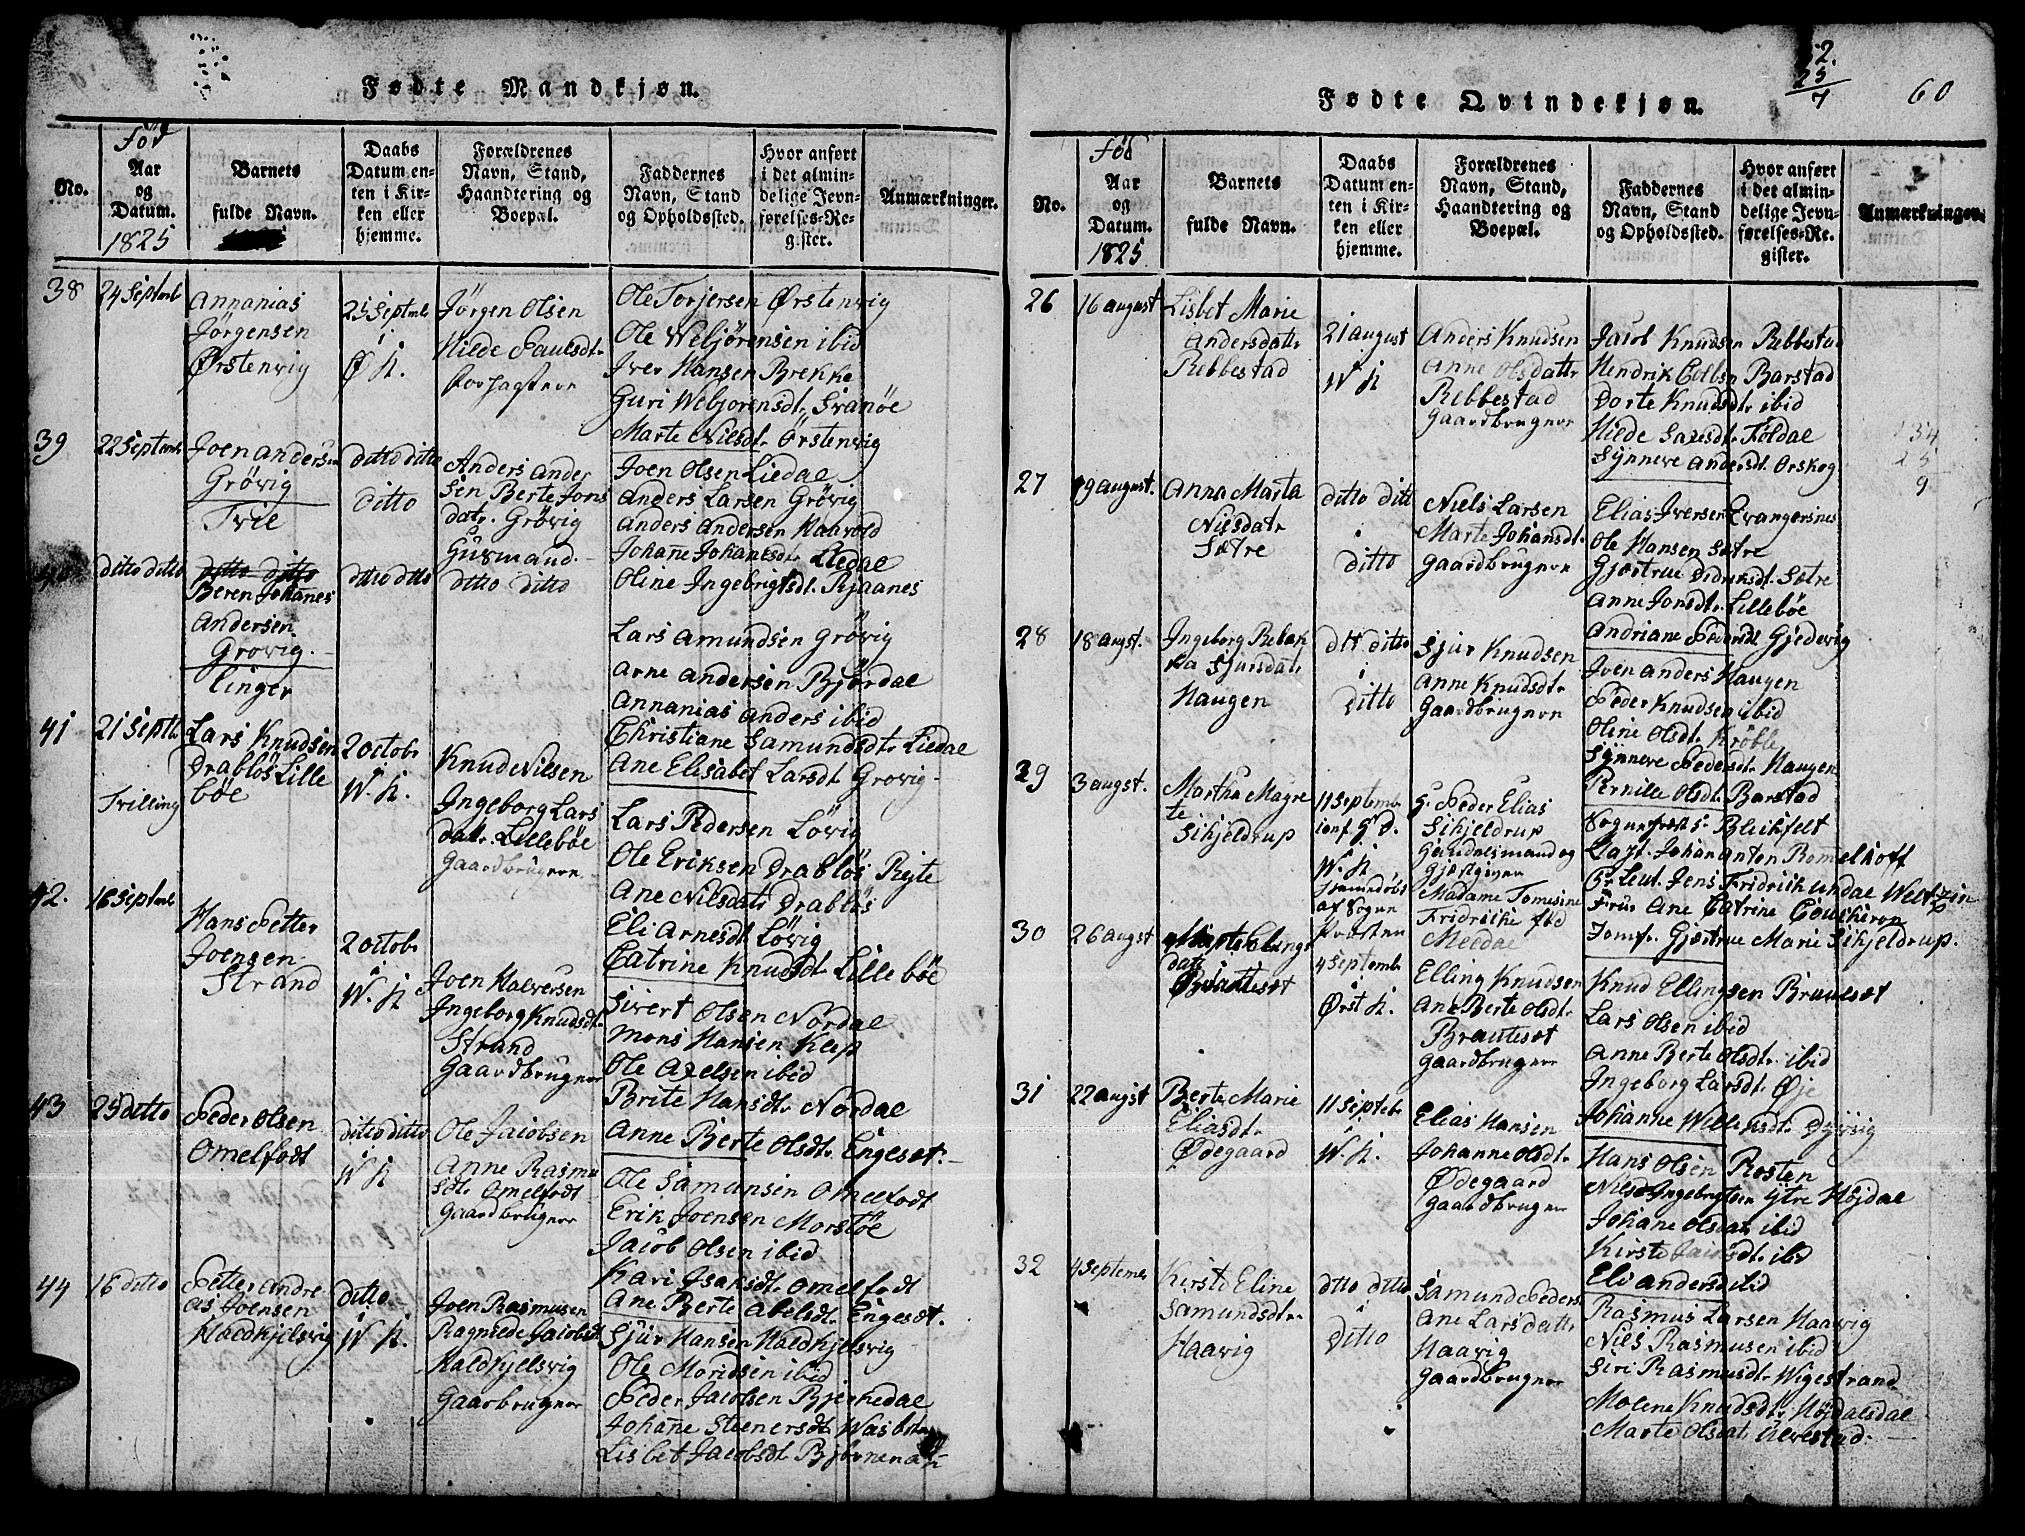 Fødte Mandkjøn.
No.
Fød
Aar
og
Datum.
1825
Barnets
fulde Navn.
Daabs
Datum en-
ten i Kir-
ken eller
hjemme.
Forældrenes
Navn, Stand,
Haandtering og
Boepæl.
Faddernes
Navn, Stand
og Opholdssted.
Hvor anført
i det almin-
delige Jevn-
førelses-Re-
gister.
Anmærkninger.
38
24 Septemb
Annanias
Jörgensen
Ørstenvig
25 Septmb
i
Ø K.
Jörgen Olsen
Hilde Paulsdt.
Ole Torjersen Ørstenvig
Ole Webjørensen ibid
Iver Hansen Brekke
Guri Webjorensdt. Svanøe
Marte Nilsdt. Örstenvig
39
22 Septemb
Joen andersen
Grövig
ditto ditto
ditto
Anders Ander
sen Berte Jons
datr. Grövig
Huusmand.
Joen Olsen Liedal
Anders Larsen Grövig
Anders Andersen Haavold
Johane Johansdt. Liedal
Oline Ingebrigtsdt. Rjaanes
40
ditto ditto
ditto ditto
Beren Johanes
Andersen
Grovig.
ditto ditto
ditto ditto
Lars Amundsen Grövig
Arne Andersen Björdal
Annanias Anders ibid
Christiane Samundsdt. Liedal
Ane Elisabet Larsdt Grovig
41
21 Septb.
Trilling
Lars Knudsen
Drablös Lille
böe
2 octobr
W. K.
Knud Nilsen
Ingeborg Lars
datr. Lillebøe
Gaardbrugere
Lars Pedersen Lövig
Ole Eriksen Drablös Rejte
Ane Nilsdatr Drablös
Eli Arnesdt Lövig
Catrine Knudsdt. Lillebøe
42.
16 Septmb
Hans Petter
Joensen
Strand
2 octobr
i
W. K
Joen Halversen
Ingeborg Knudsdt.
Strand
Gaardbruger
Sivert Olsen Nordal
Mons Hansen Klep
Ole Axelsen ibid
Brite Hansdt. Nordal
Anne Berte Olsdt. Engeset.
43
25 ditto
Peder Olsen
Omelfodt
ditto ditto
W K
Ole Jacobsen
Anne Rasmu
sdt. Omelfodt
Gaardbruger
Ole Samunsen Omelfodt
Erik Joensen Morstöe
Jacob Olsen ibid
Kari Isaksdt. Omelfodt
Ane Berte Abelsdt. Engesdt.
44
16 ditto
Petter Andre
as Joensen
Haldkjelsvig
ditto
i
W. K.
Joen Rasmusen
Ragnilde Jacobsdt
Haldkjelsvig
Gaarbruger
Sjur Hansen Haldkjelsvig
Ole Moridsen ibid
Peder Jacobsen Bjerkedal
Johane Steenersdt.
Lisbet Jacobsdt.
Fødte Qvindekjøn.
52.
25
7
60
No.
Fød
Aar
og
Datum.
1825
Barnets
fulde Navn.
Daabs
Datum en-
ten i Kir-
ken eller
hjemme.
Forældrenes
Navn, Stand,
Haandtering og
Boepæl.
Faddernes
Navn, Stand
og Opholdssted.
Hvor anført
i det almin-
delige Jevn-
førelses-Re-
gister.
Anmærkninger.
26
16 august
Lisbet Marie
Andersdatr
Rebbestad
21 august
i
W K
Anders Knudsen
Anne Olsdattr
Rebbestad
Gaardbruger
Jacob Knudsen Rebbestad
Hendrik Colbn Barstad
Dorte Knudsdt. ibid
Hilde Saxesdt. Foldal
Synneve Andersdt. Orskog
27
19 august.
Anna Marta
Nilsdatr
Sætre
ditto ditt
i
ditto
Niels Larsen
Marte Johansdt.
Gaardbruger
Elias Iversen
Ole Hansen Sætre
Gjertrue Didriksdt. Sætre
Anne Jonsdt. Lillebøe
Andriane Pedersdt. Gjedevig
28
18 augst.
Ingeborg Rebek
ka Sjursdatr
Haugen
ditt ditto
i
ditto
Sjur Knudsen
Anne Knudsdt.
Gaardbruger
Joen Anders Haugen
Peder Knudsen ibid
Oline Olsdt. Krøble
Synneve Pedersdt. Haugen
Pernille Olsdt. Barstad
29
3 augst.
Martha Magre
te
Sihjeldrup
11 Septembr
W. K
hjemedøbt
af Sogne
Præsten
Hr. Peder Elias
Sihjeldrup
Handelsmand og
Gjæstgiver
Madame Tomesine
Fridriche fød
Meldal
Sognepræst Hr. Blichfelt
Capt. Johan Anton Romelhoff
Pr Leut. Jens Fridrich
Frue Ane Catrine
Jomfr. Gjertrue Marie Sihjeldrup.
30
26 augst
Marte Ellings
datr
Brautteset
4 Septembr
i
Ørst K.
Elling Knudsen
Ane Berte Olsdt.
Brautteset
Gaardbruger
Knud Ellingsen Brauteset
Lars Olsen ibid
Anne Berte Olsdt. ibid
Ingeborg Larsdt. Øje
Johanne Willumsdt. Dyrvig
31
22 augst
Berte Marie
Eliasdt.
Ødegaard
11 Septebr
i
W. K.
Elias Hansen
Johanne Olsdt.
Ødegaard
Gaardbruger
Hans Olsen Rosten
Nils Ingebrigtsen Ytre Höjdal
Johane Olsdatr ibid
Kirsti Jacobsdt. ibid
Eli Andersd ibid
32
4 Septembr
Kirsti Eline
Samundsdt.
Haavig
ditto ditto
i
ditto
Samund Peders.
Ane Lars datter
Haavig
Gaardbruger
Rasmus Larsen Haavig
Nils Rasmusen ibid
Siri Rasmusdt. Wigestrand
Malene Knudsdt. Höjdalsdal
Marte Olsdatr. Ulvestad.